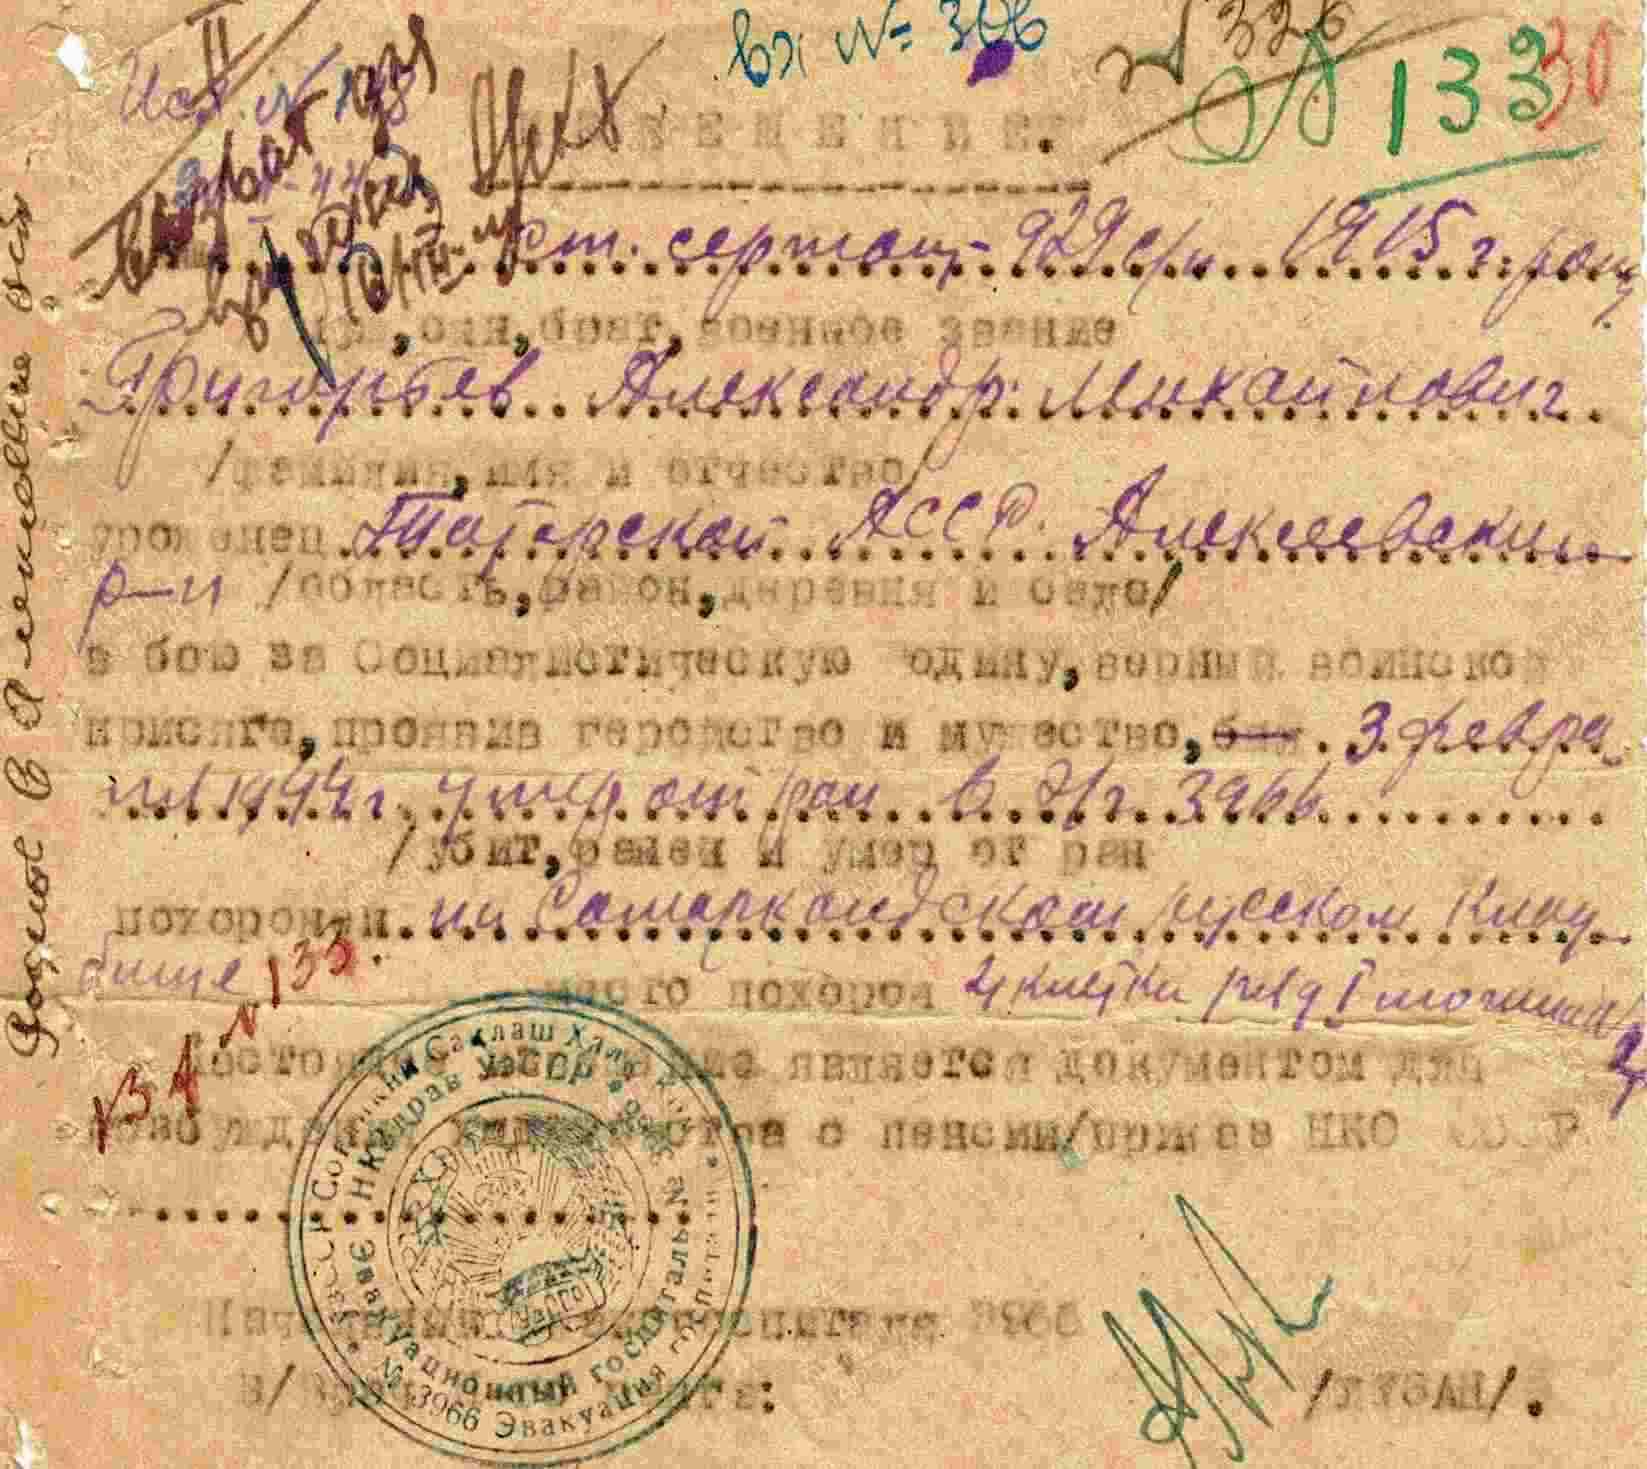 вх № 306
№ 326
133
30
Исх. № 148
ИЗВЕЩЕНИЕ.
Ваш ст. сержант 929 с/п 1915 г. рожд.
муж, сын, брат, военное звание
Григорьев Александр Михайлович
/фамилия, имя и отчество/
уроженец Татарской АССР. Алексеевский
р-н /область, район, деревня и село/
в бою за Социалистическую Родину, верный воинской
присяге, проявив геройство и мужество, был 3 февра
ля 1944 г. умер от ран в э/г 3966
/убит, ранен и умер от ран
похоронен на Самаркандском русском клад
бище место похорон 2 клетка ряд I могила
№ 133.
Настоящее извещение является документом для
возбуждения ходатайства о пенсии/приказ НКО СССР
№34
Начальник эвакогоспиталя 3966
/ЛУБАН/.
НКздрав УзССР
Эвакуационный госпиталь №
№ 3966 Эвакуация госпитали